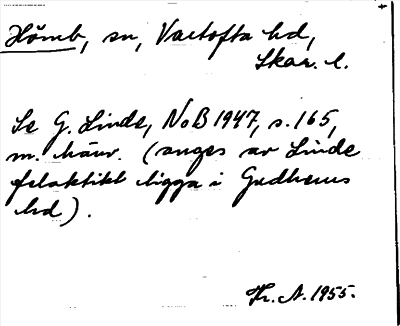 Hömb, sn, Vartofta hd,
Skar. l.
Se G. Linde, NoB 1947, s. 165,
m. hänv. (anges av Linde
felaktikt ligga i Gudhems
hd).
Hr. A. 1955.